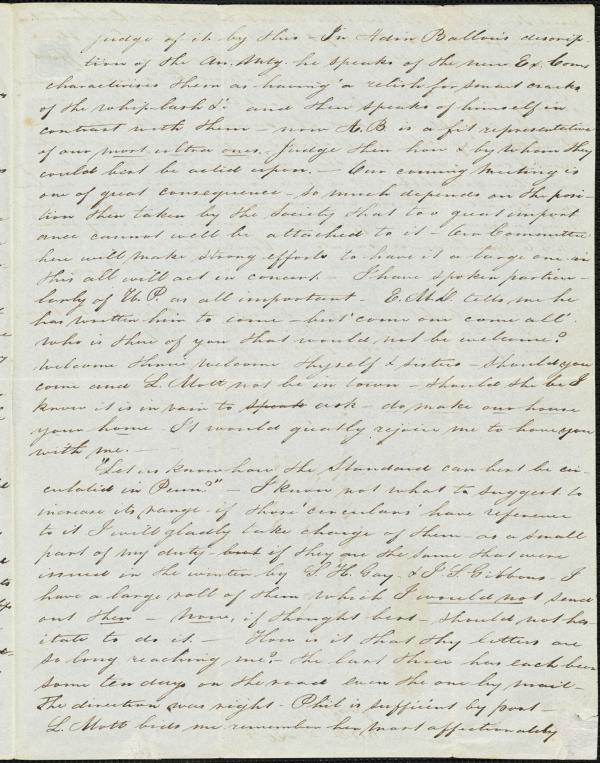 judge of it by this – In Adin Ballou's descrip-
tion of the An. Meetg. he speaks of the new Ex. Com.
characterises them as having 'a relish for smart cracks
of the whip-lash &c' and then speaks of himself in
contrast with them – now A.B. is a fit representative
of our most ultra ones. Judge then how & by whom they
could best be acted upon. – Our coming Meeting is
one of great consequence – so much depends on the posi-
tion then taken by the Society that too great import
ance cannot well be attached to it – Our Committee
here will make strong efforts to have it a large one – in
this all will act in concert – I have spoken particu-
larly of W.P. as all important – E.M.D. tells me he
has written him to come – but 'come one come all'
who is there of you that would not be welcome?
welcome thrice welcome thyself & sisters – should you
come and L. Mott not be in town – should she be I
know it is in vain to speak ask – do make our house
your home – It would greatly rejoice me to have you
with me. –
"Let us know how the Standard can best be cir-
culated in Penn?" – I know not what to suggest to
increase its range – if those 'circulars' have reference
to it I will gladly take charge of them – as a small
part of my duty – but if they are the same that were
issued in the winter by S. H. Gay & J. S. Gibbons – I
have a large roll of them which I would not send
out then – Now, if thought best – should not hes-
itate to do it. – How is it that thy letters are
so long reaching me? – the last three has each been
some ten days on the road even the one by mail –
The direction was right – Phil is sufficient by post –
L. Mott bids me remember her most affectionately